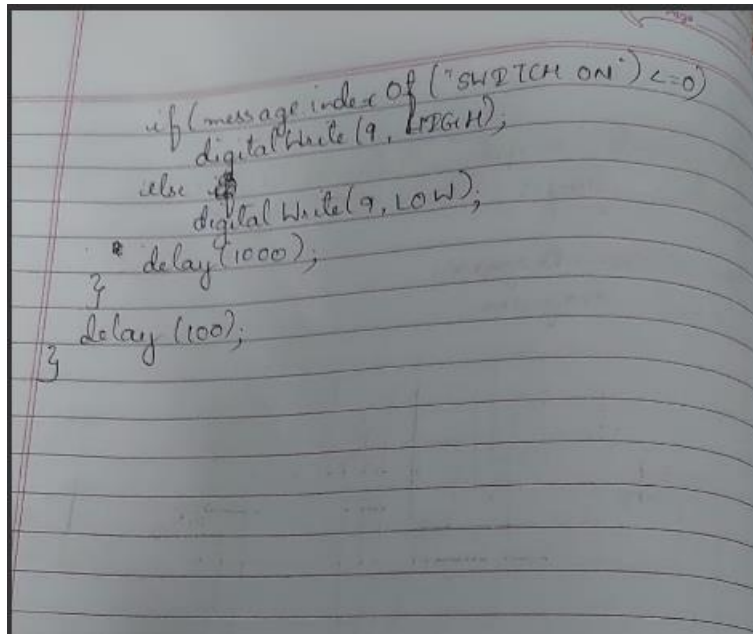 if (message.indexOf("SWITCH ON") <=0)
digitalWrite(9, HIGH);
else
digitalWrite(9, LOW);
delay(1000);
}
delay (100);
}